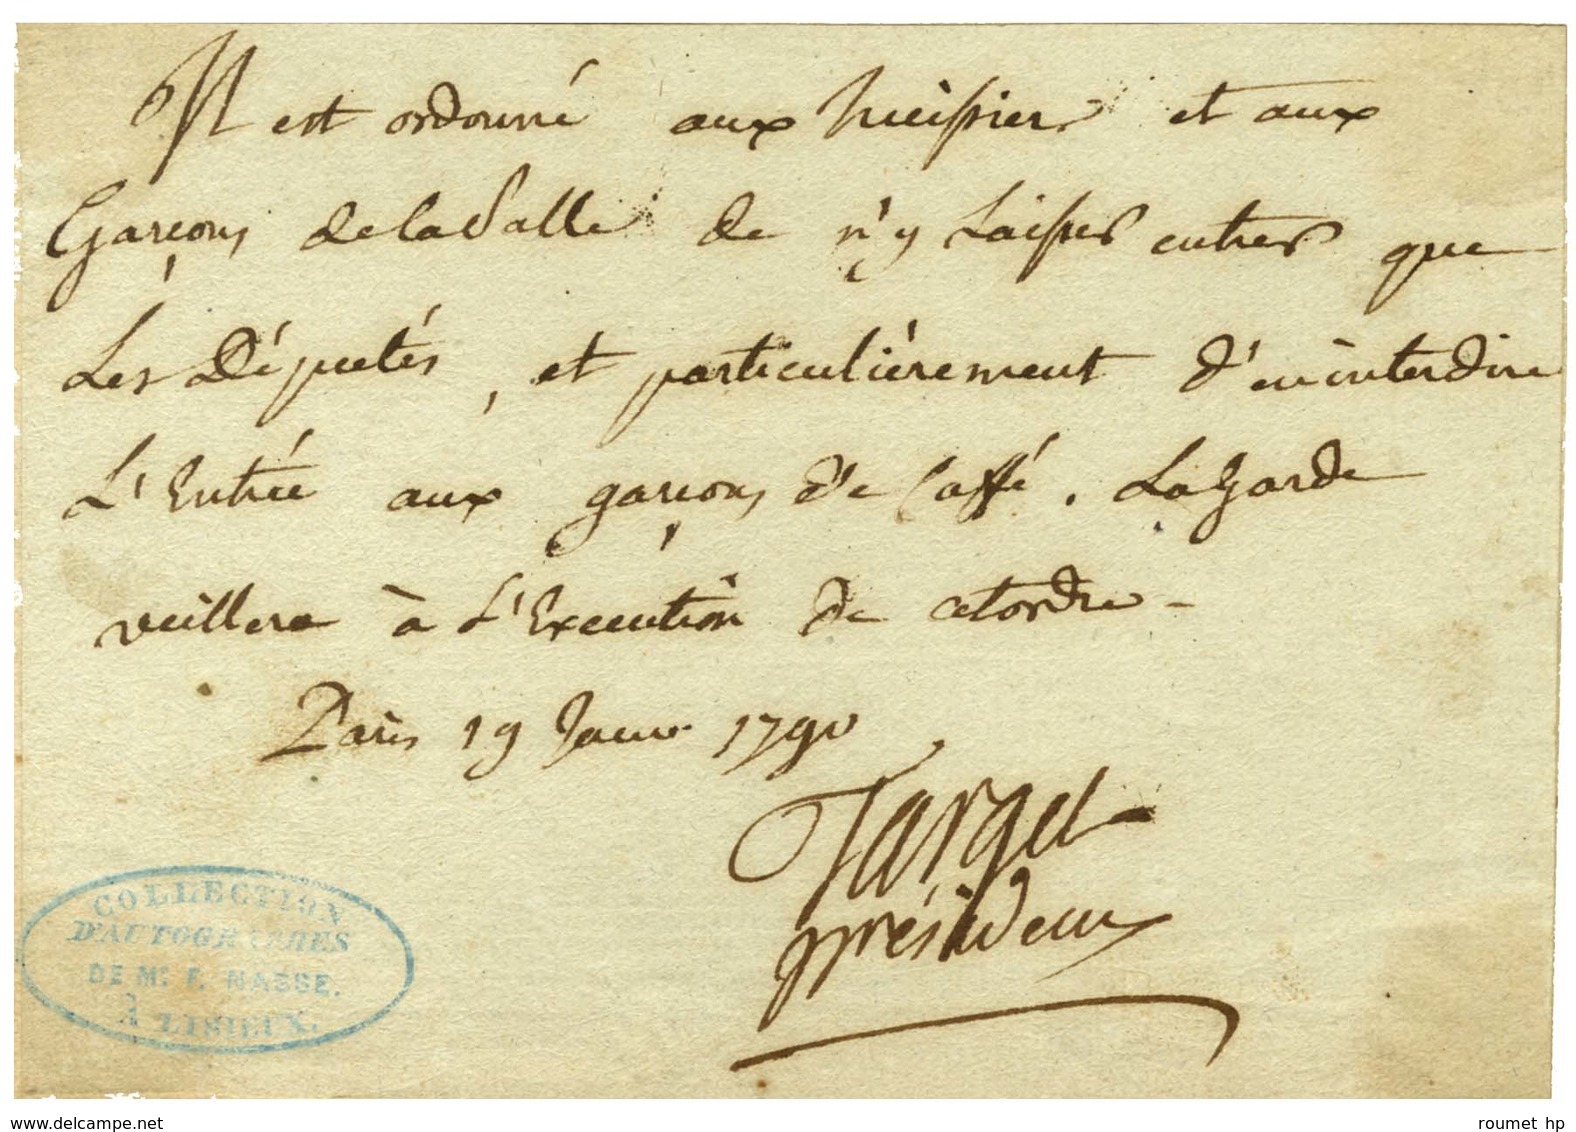 Il est ordonné aux huissiers et aux
Garçons de la Salle de n'y Laisser entrer que
Les Députés, et particulièrement d'en interdire
L'Entrée aux garçons de Caffé. La Garde
veillera à L'Execution de cet ordre -
Paris 19 Janv. 1790
Target
président
COLLECTION
D'AUTOGRAPHES
DE Mr. F. NASSE.
À LISIEUX.
www.delcampe.net
roumet hp